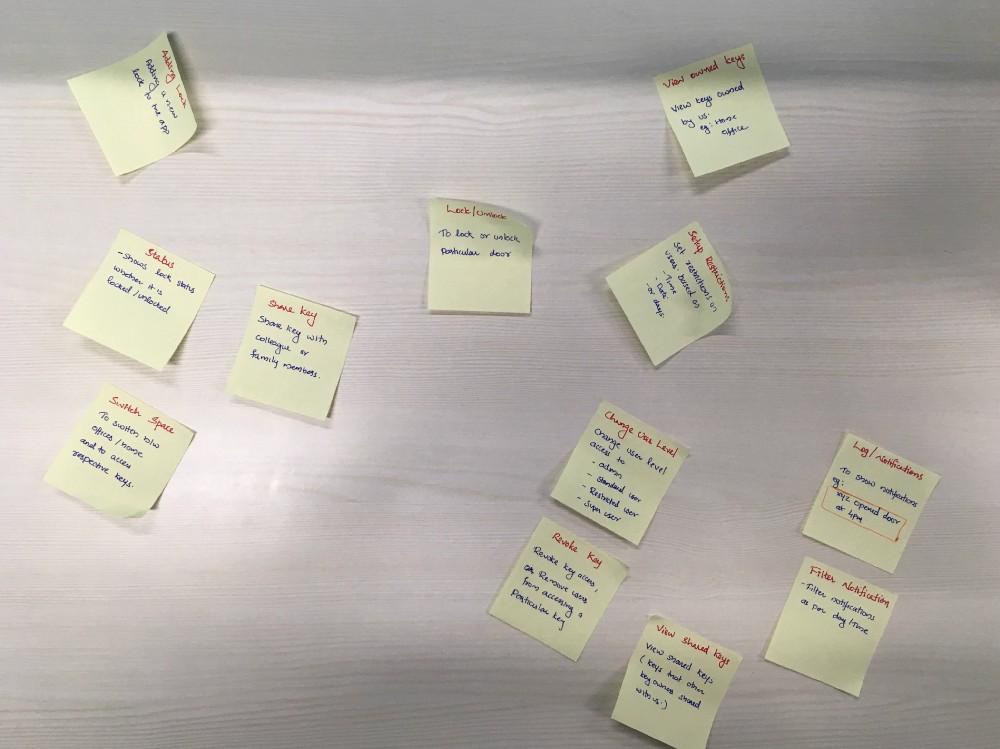 Adding Lock
Adding a new
lock to the app
View owned keys
View keys owned
by us.
eg: Home
office
Lock/unlock
To lock or unlock
Particular door
Setup Restrictions
Set restrictions on
users based on
- Time
- Date
- or days.
Status
- Shows lock status
whether it is
locked/unlocked
Share key
Share key with
colleague or
family members.
Switch Space
To switch b/w
offices/home
and to access
respective keys.
Change User Level
Change user level
access to
- admin
- Standard user
- Restricted user
- Super user
Log/Notifications
To show notifications
eg:
xyz opened door
at 4PM
Revoke Key
Revoke key access,
or Remove users
from accessing a
Particular key
Filter Notification
- Filter notifications
as per day/time
View shared keys
View shared keys
(keys that other
key owner shared
with us.)